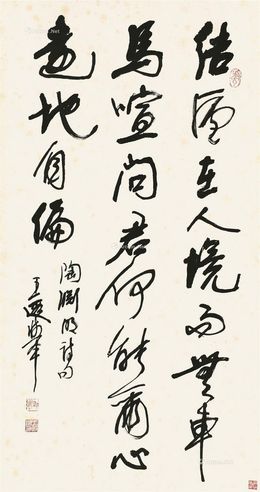 结庐在人境而无车
马喧问君何能尔心
远地自偏
陶渊明诗句
王遐举